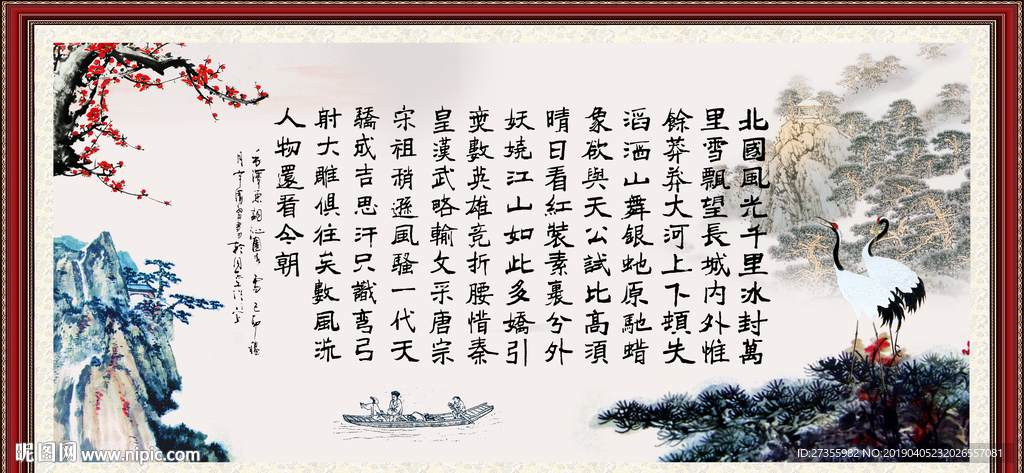 北國風光千里冰封萬
里雪飄望長城内外惟
餘莽莽大河上下頓失
滔滔山舞銀虵原馳蜡
象欲與天公試比高須
晴日看紅裝素裹分外
妖嬈江山如此多嬌引
無數英雄竞折腰惜秦
皇漢武略輸文采唐宗
宋祖稍遜風騷一代天
驕成吉思汗只識彎弓
射大雕俱往矣數風流
人物還看今朝
毛澤東詞沁園春 雪 己卯
昵图网 www.nipic.com
ID:27355982 NO:20190405232026557081